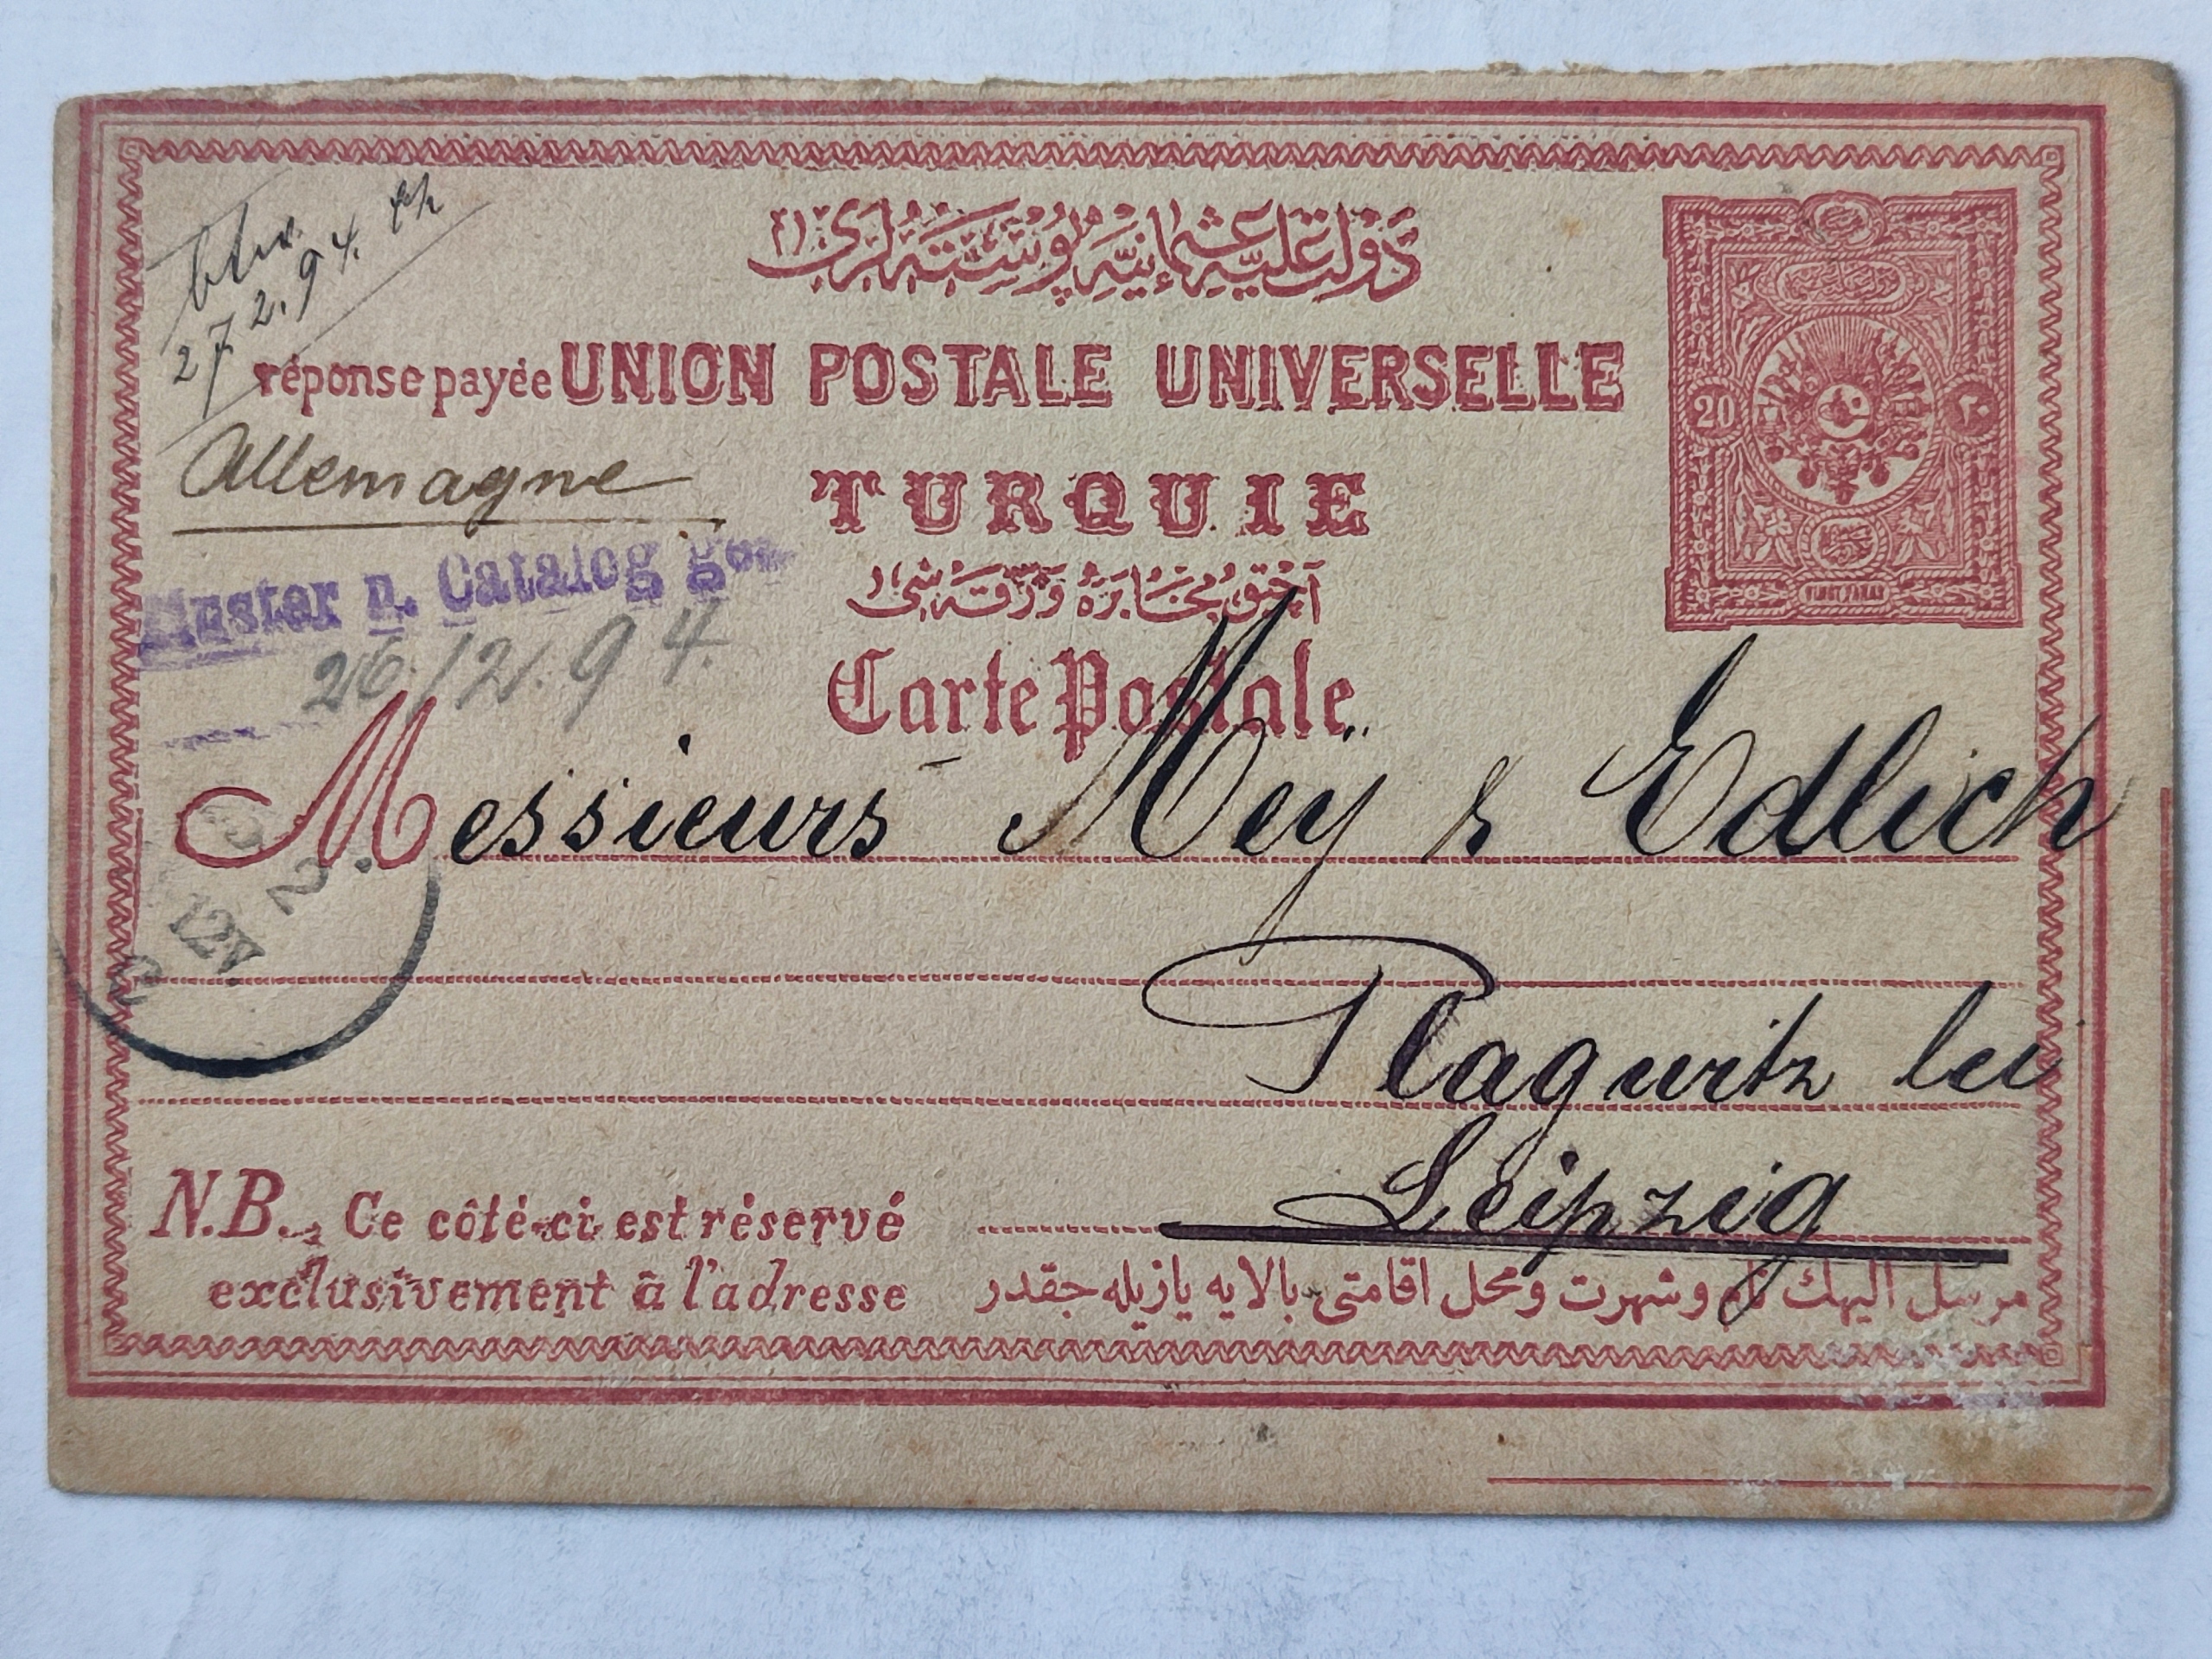 دولت عليه عثمانيه پوسته لرى
27.2.94.
réponse payée UNION POSTALE UNIVERSELLE
20 ٢٠
Allemagne
TURQUIE
VINGT PARAS
آچيق مخابره ورقه سى
Muster u. Catalog
26/2.94.
Carte Postale
Messieurs Mey & Edlich
2
12V
Plagwitz bei
Leipzig
N.B. Ce côté-ci est réservé
exclusivement à l'adresse
مرسل اليهك نام وشهرت ومحل اقامتى بالايه يازيله جقدر